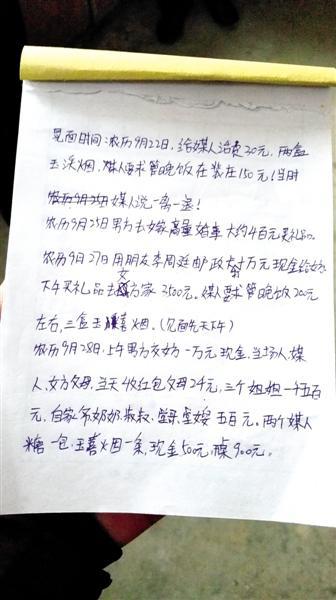 见面时间：农历9月22日，给媒人洽费30元，两盒
玉溪烟，媒人要求管晚饭在 150元（当时
媒人说一高一退！
农历9月25日男方去嫁商量婚事大约4百元买礼品。
农历9月27日用朋友李同廷邮政 十万元现金给
下午买礼品去女方家3500元。媒人要求管晚饭200元
左右，三盒玉喜烟。（见面先天下午）
农历9月28日，上午男方交女方一万元现金，当场人、媒
人、女方父母，当天收红包父母24元，三个姐姐一千五百
元，自家爷奶奶、叔叔、 五百元。两个媒人
糖一包，玉喜烟一条，现金50元， 900元。